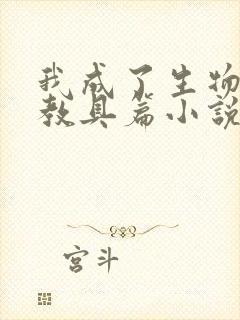 我成了生物
教具篇小說
宫斗